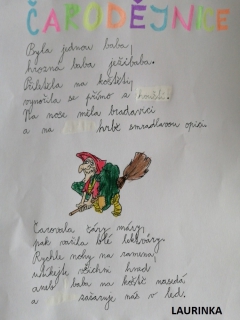 ČARODĚJNKE
Byla jednou baba
hrozná baba ježibaba.
Přiletěla na koštěti
vynořila se přímo z houští.
Na nose měla bradavici
a na hrbě smradlavou opici.
Čarovala čáry máry,
pak vařila blé lektvary.
Rychle nohy na ramena,
utíkejte všichni hned
aneb baba na koště nasedá
a začaruje nás v led.
LAURINKA